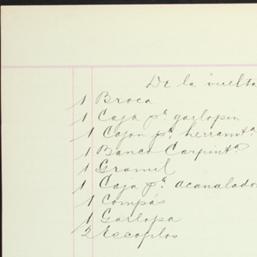 De la vuelta
1 Broca
1 Caja pª garlopin
1 Cajon pª herramtª
1 Banco Carpintª
1 Gramil
1 Caja pª acanalado
1 Compás
1 Garlopa
2 Escoplos